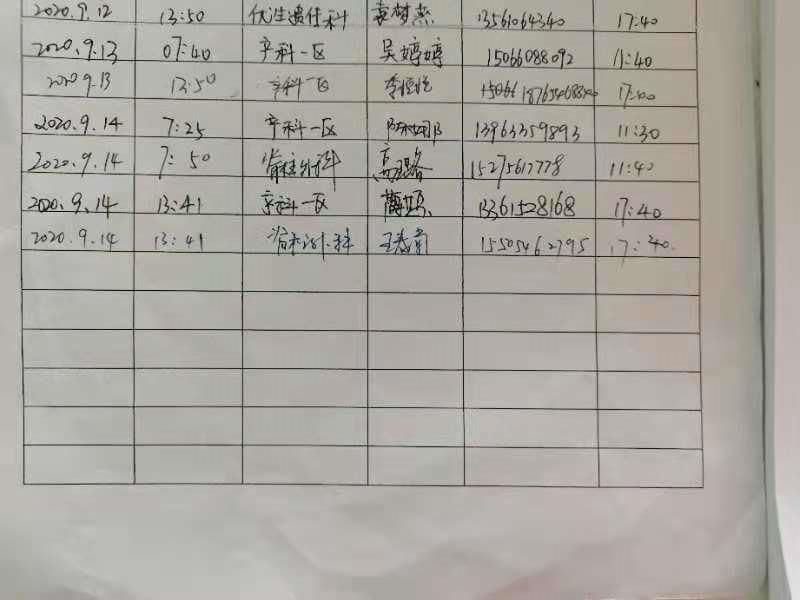 2020.9.12 13:50 优生遗传科 袁梦燕 13561064340 17:40
2020.9.13 07:40 产科一区 吴婷婷 15066088092 11:40
2020 9.13 13:50 产科一区 17:00
2020.9.14 7:25 产科一区 13963359893 11:30
2020.9.14 7:50 脊柱外科 15275617778 11:40
2020.9.14 13:41 产科一区 13361528168 17:40
2020.9.14 13:41 脊柱外科 15505462795 17:40.